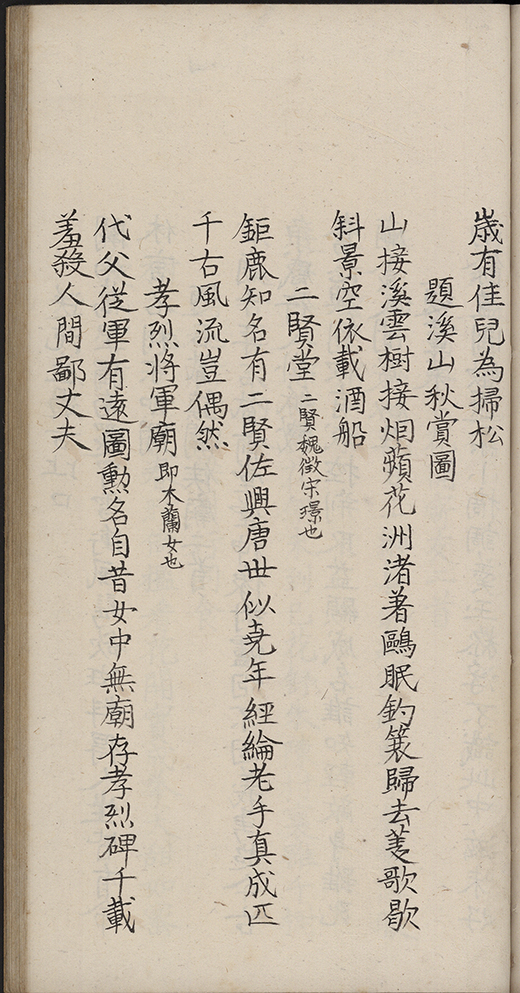 歳有佳兒為掃松
題溪山秋賞圖
山接溪雲樹接烟蘋花洲渚着鷗眠釣簑歸去菱歌歇
斜景空依載酒船
二賢堂二賢魏徵宋璟也
鉅鹿知名有二賢佐興唐世似堯年經綸老手真成匹
千古風流豈偶然
孝烈将軍廟即木蘭女也
代父從軍有遠圖勲名自昔女中無廟存孝烈碑千載
羞殺人間鄙丈夫